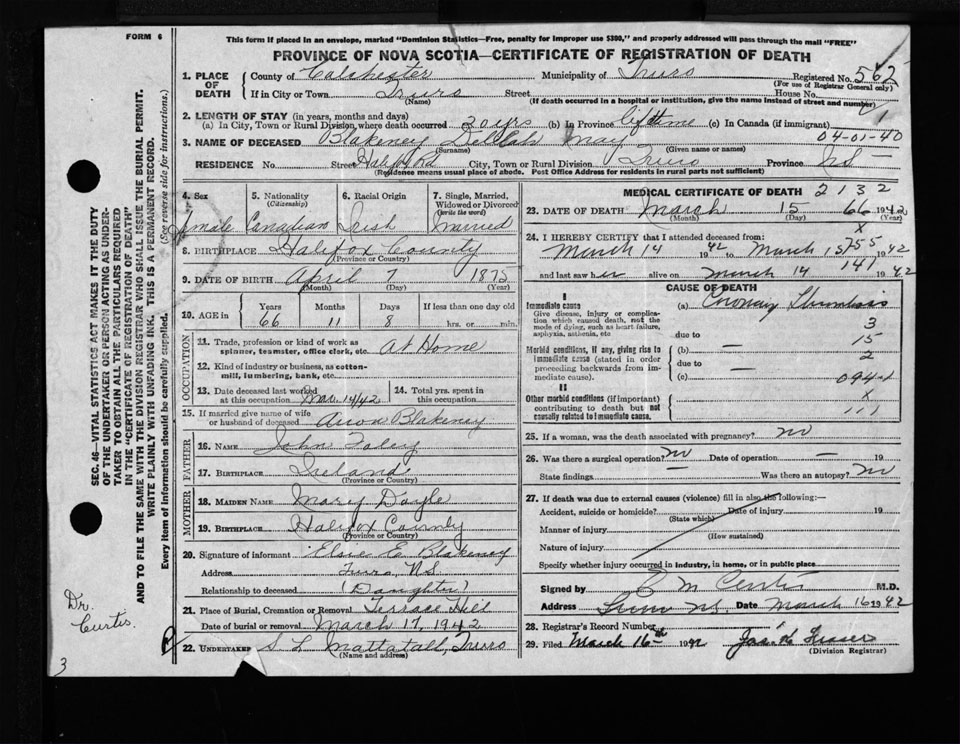 FORM 6
This form if placed in an envelope, marked "Dominion Statistics—Free, penalty for improper use $300," and properly addressed will pass through the mail "FREE"
PROVINCE OF NOVA SCOTIA—CERTIFICATE OF REGISTRATION OF DEATH
1. PLACE OF DEATH
County of Colchester Municipality of Truro Registered No. 562
(For use of Registrar General only)
If in City or Town Truro Street House No.
(Name) (If death occurred in a hospital or institution, give the name instead of street and number)
2. LENGTH OF STAY (in years, months and days)
(a) In City, Town or Rural Division where death occurred 30 yrs (b) In Province lifetime (c) In Canada (if immigrant)
04-01-40
3. NAME OF DECEASED Blakeney Delilah May
(Surname) (Given name or names)
RESIDENCE No. Street City, Town or Rural Division Truro Province NS
(Residence means usual place of abode. Post Office Address for residents in rural parts not sufficient)
4. Sex
5. Nationality (Citizenship)
6. Racial Origin
7. Single, Married, Widowed or Divorced (write the word)
Female Canadian Irish Married
8. BIRTHPLACE Halifax County
(Province or Country)
9. DATE OF BIRTH April 7 1875
(Month) (Day) (Year)
10. AGE in Years Months Days If less than one day old
66 11 8 hrs. or min.
OCCUPATION
11. Trade, profession or kind of work as spinner, teamster, office clerk, etc. At Home
12. Kind of industry or business, as cotton-mill, lumbering, bank, etc.
13. Date deceased last worked at this occupation Mar. 14/42
14. Total yrs. spent in this occupation
15. If married give name of wife or husband of deceased Blakeney
FATHER
16. NAME John Foley
17. BIRTHPLACE Ireland
(Province or Country)
MOTHER
18. MAIDEN NAME Mary Doyle
19. BIRTHPLACE Halifax County
(Province or Country)
20. Signature of informant Elsie E Blakeney
Address Truro, NS
Relationship to deceased (Daughter)
21. Place of Burial, Cremation or Removal Terrace Hill
Date of burial or removal March 17, 1942
22. UNDERTAKER S L Mattatall, Truro
(Name and address)
MEDICAL CERTIFICATE OF DEATH 2132
23. DATE OF DEATH March 15 66 1942
(Month) (Day) (Year)
24. I HEREBY CERTIFY that I attended deceased from:
March 14 1942 to March 15 1942
755
X
and last saw her alive on March 14 1942
141
CAUSE OF DEATH
I
Immediate cause
Give disease, injury or complication which caused death, not the mode of dying, such as heart failure, asphyxia, asthenia, etc
(a) Coronary Thrombosis
3
due to
15
Morbid conditions, if any, giving rise to immediate cause (stated in order proceeding backwards from immediate cause).
(b) —
2
due to
(c) —
094-1
II
X
Other morbid conditions (if important) contributing to death but not causally related to immediate cause.
111
25. If a woman, was the death associated with pregnancy? no
26. Was there a surgical operation? no Date of operation — 19
State findings Was there an autopsy? no
27. If death was due to external causes (violence) fill in also the following:—
Accident, suicide or homicide? Date of injury 19
(State which)
Manner of injury
(How sustained)
Nature of injury
Specify whether injury occurred in industry, in home, or in public place
Signed by C M M.D.
Address Truro NS Date March 16 1942
28. Registrar's Record Number
29. Filed March 16th 1942
(Division Registrar)
SEC. 46—VITAL STATISTICS ACT MAKES IT THE DUTY
OF THE UNDERTAKER OR PERSON ACTING AS UNDER-
TAKER TO OBTAIN ALL THE PARTICULARS REQUIRED
IN THE "CERTIFICATE OF REGISTRATION OF DEATH"
AND TO FILE THE SAME WITH THE DIVISION REGISTRAR WHO SHALL ISSUE THE BURIAL PERMIT.
WRITE PLAINLY WITH UNFADING INK. THIS IS A PERMANENT RECORD.
Every item of information should be carefully supplied. (See reverse side for instructions.)
Dr. Curtis.
3